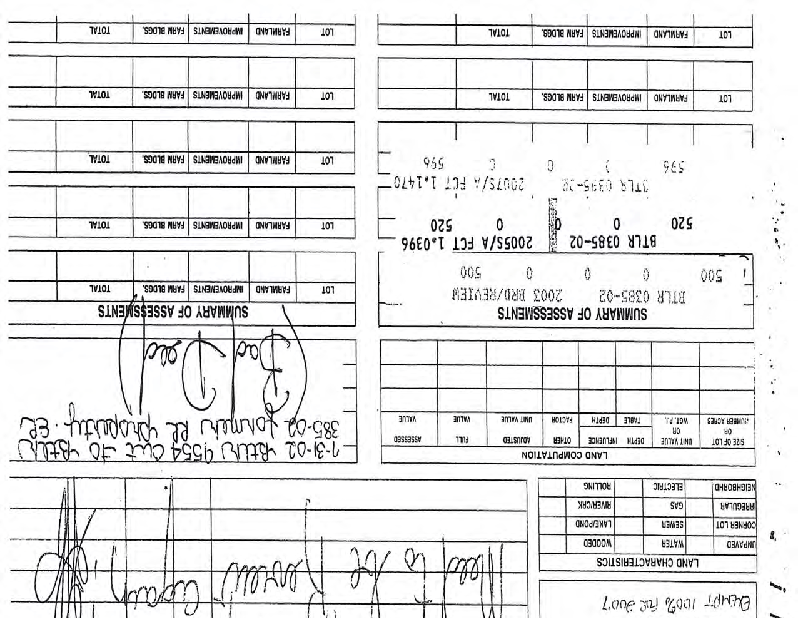 EXEMPT 100% FOR 2007
LAND CHARACTERISTICS
UNPAVED WATER WOODED
CORNER LOT SEWER LAKE/POND
IRREGULAR GAS RIVER/CRK
NEIGHBORHD ELECTRIC ROLLING
LAND COMPUTATION
SIZE OF LOT OR NUMBER ACRES
UNIT VALUE OR WGT. P.I.
DEPTH TABLE
INFLUENCE DEPTH
OTHER FACTOR
ADJUSTED UNIT VALUE
FULL VALUE
ASSESSED VALUE
7-31-02 Btlr 9554 out to Btlr
385-02 former RR property.
Bad Deed
SUMMARY OF ASSESSMENTS
BTLR 0385-02 2003 BRD/REVIEW
500 0 0 0 500
BTLR 0385-02 2005S/A FCT 1.0396
520 0 0 0 520
BTLR 0385-02 2007S/A FCT 1.1470
596 0 0 596
LOT FARMLAND IMPROVEMENTS FARM BLDGS. TOTAL
LOT FARMLAND IMPROVEMENTS FARM BLDGS. TOTAL
SUMMARY OF ASSESSMENTS
LOT FARMLAND IMPROVEMENTS FARM BLDGS. TOTAL
LOT FARMLAND IMPROVEMENTS FARM BLDGS. TOTAL
LOT FARMLAND IMPROVEMENTS FARM BLDGS. TOTAL
LOT FARMLAND IMPROVEMENTS FARM BLDGS. TOTAL
LOT FARMLAND IMPROVEMENTS FARM BLDGS. TOTAL